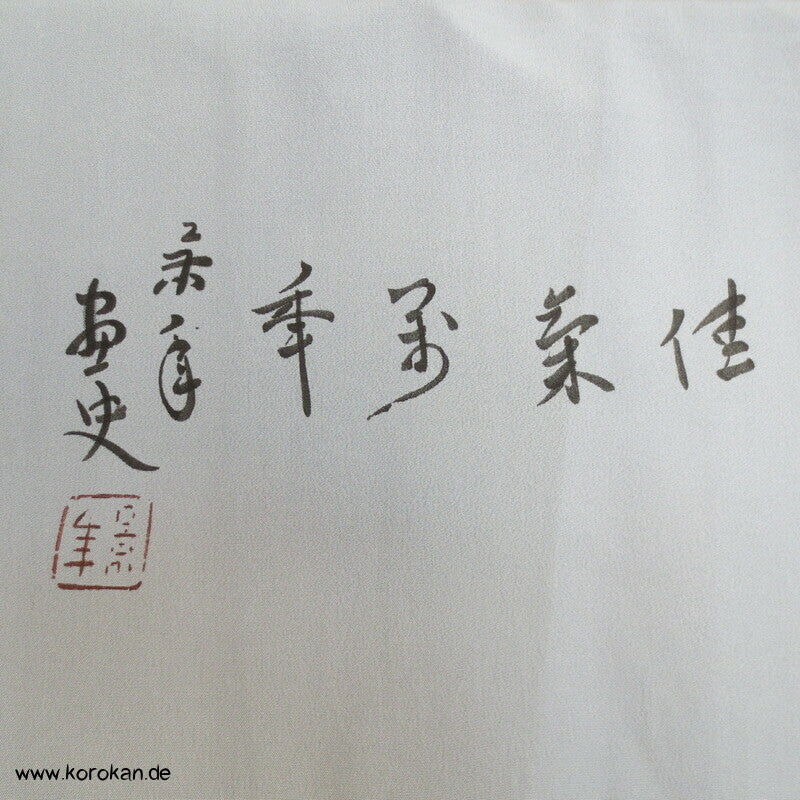 佳 萬年
景年
畫史
景年
www.korokan.de